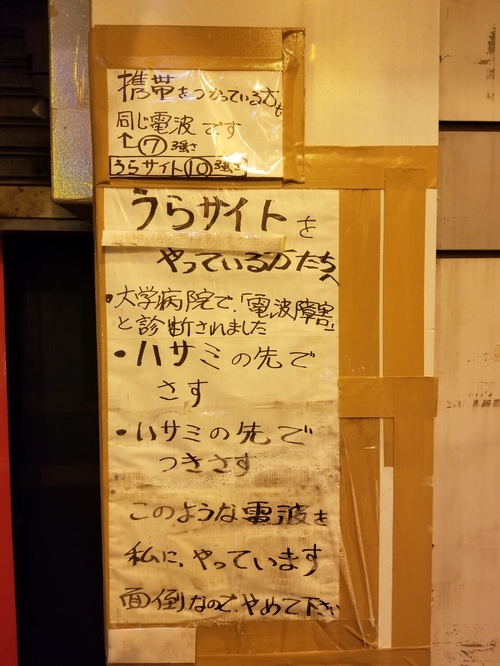 携帯をつかっている方も
同じ電波です
↑⑦強さ
うらサイト⑩強さ
うらサイトを
やっている方たちへ
・大学病院で、「電波障害」
と診断されました
・ハサミの先で
さす
・ハサミの先で
つきさす
このような電波を
私に、やっています
面倒なので、やめて下さい